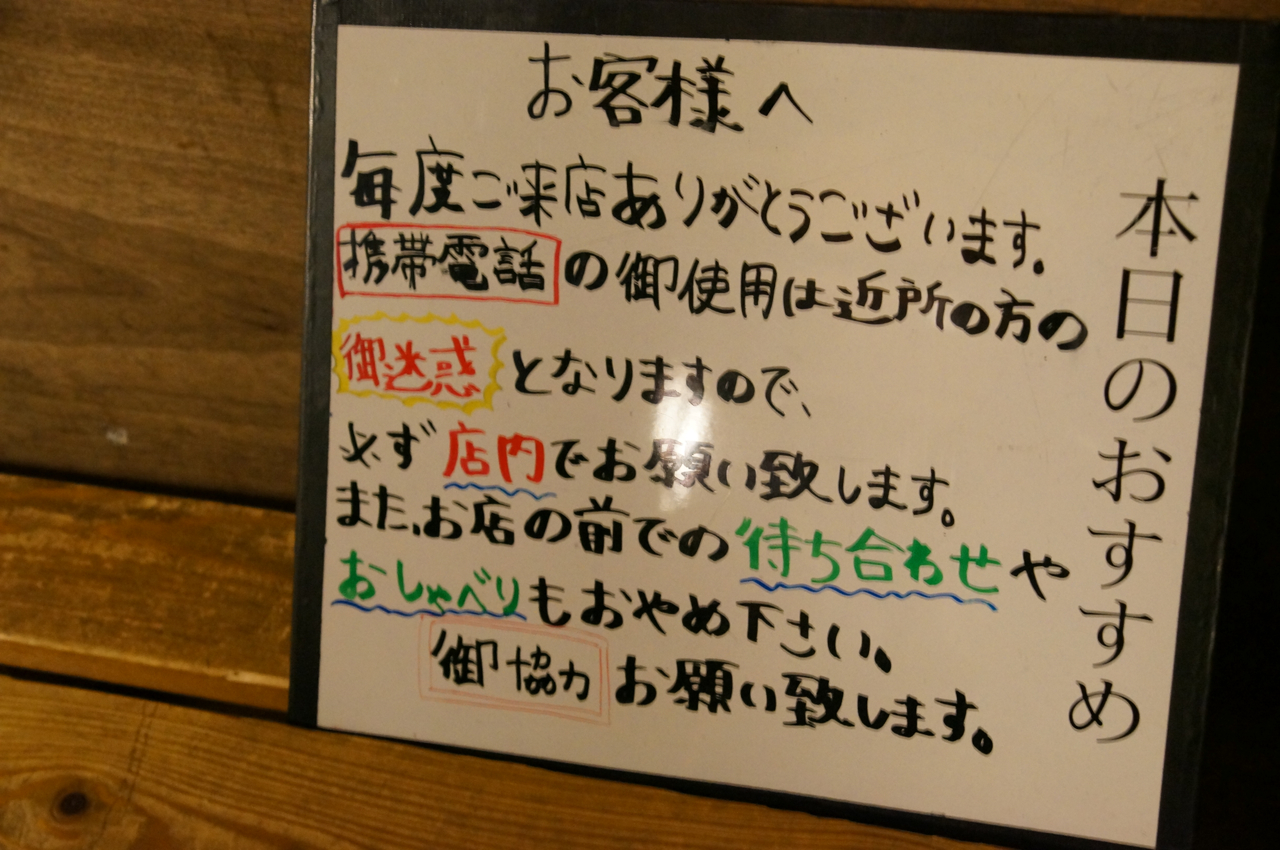 お客様へ
毎度ご来店ありがとうございます。
携帯電話の御使用は近所の方の
御迷惑となりますので、
必ず店内でお願い致します。
また、お店の前での待ち合わせや
おしゃべりもおやめ下さい。
御協力お願い致します。
本日のおすすめ